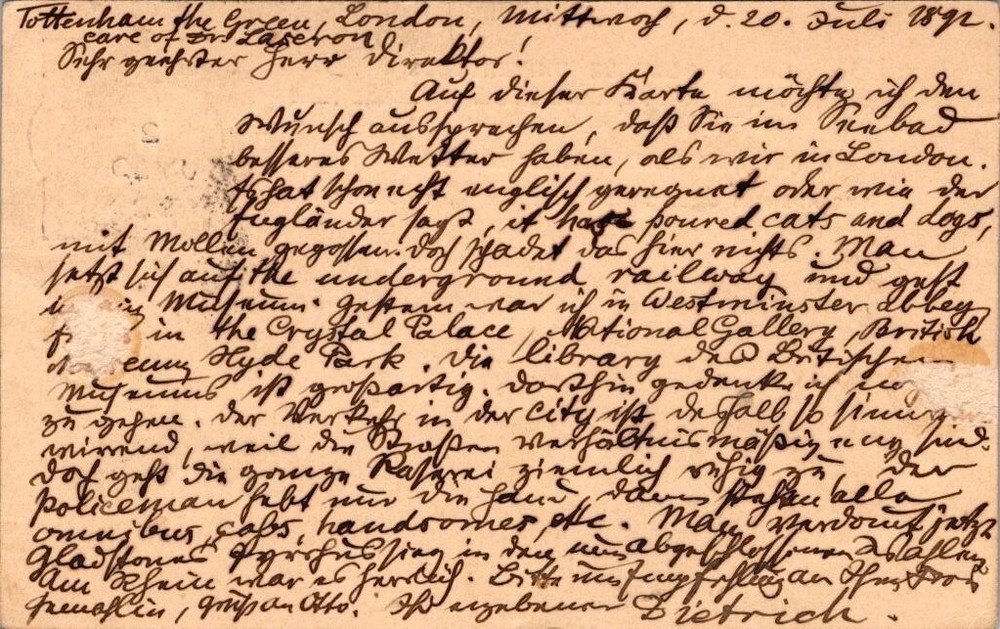 Tottenham the Green, London, Mittwoch, d. 20. Juli 1892.
care of Dr. Laseron
Sehr geehrter Herr Direktor!
Auf dieser Karte möchte ich den
Wunsch aussprechen, daß Sie im Seebad
besseres Wetter haben, als wir in London.
Es hat schon echt englisch geregnet oder wie der
Engländer sagt, it has poured cats and dogs,
mit Mollen gegossen. Doch schadet das hier nichts. Man
setzt sich auf the underground railway und geht
Museum. Gestern war ich in Westminster Abbey
in the Crystal Palace, National Gallery, British
Hyde Park. Die library des Britischen
Museums ist großartig. Dorthin gedenke ich
zu gehen. Der Verkehr in der City ist deshalb so sinn
wirrend, weil die Straßen verhältnismäßig eng sind.
Doch geht die ganze Raserei ziemlich ruhig zu, der
Policeman hebt nur die Hand, dann stehen alle
omnibus, cabs, handsomes, etc. Man jetzt
Gladstones Pyrrhussieg in den nun abgeschlossenen Wahlen
Am Rhein war es herrlich. Bitte um Empfehlung an Ihre Frau
Gemahlin, Gruß an Otto. Ihr ergebener Dietrich.